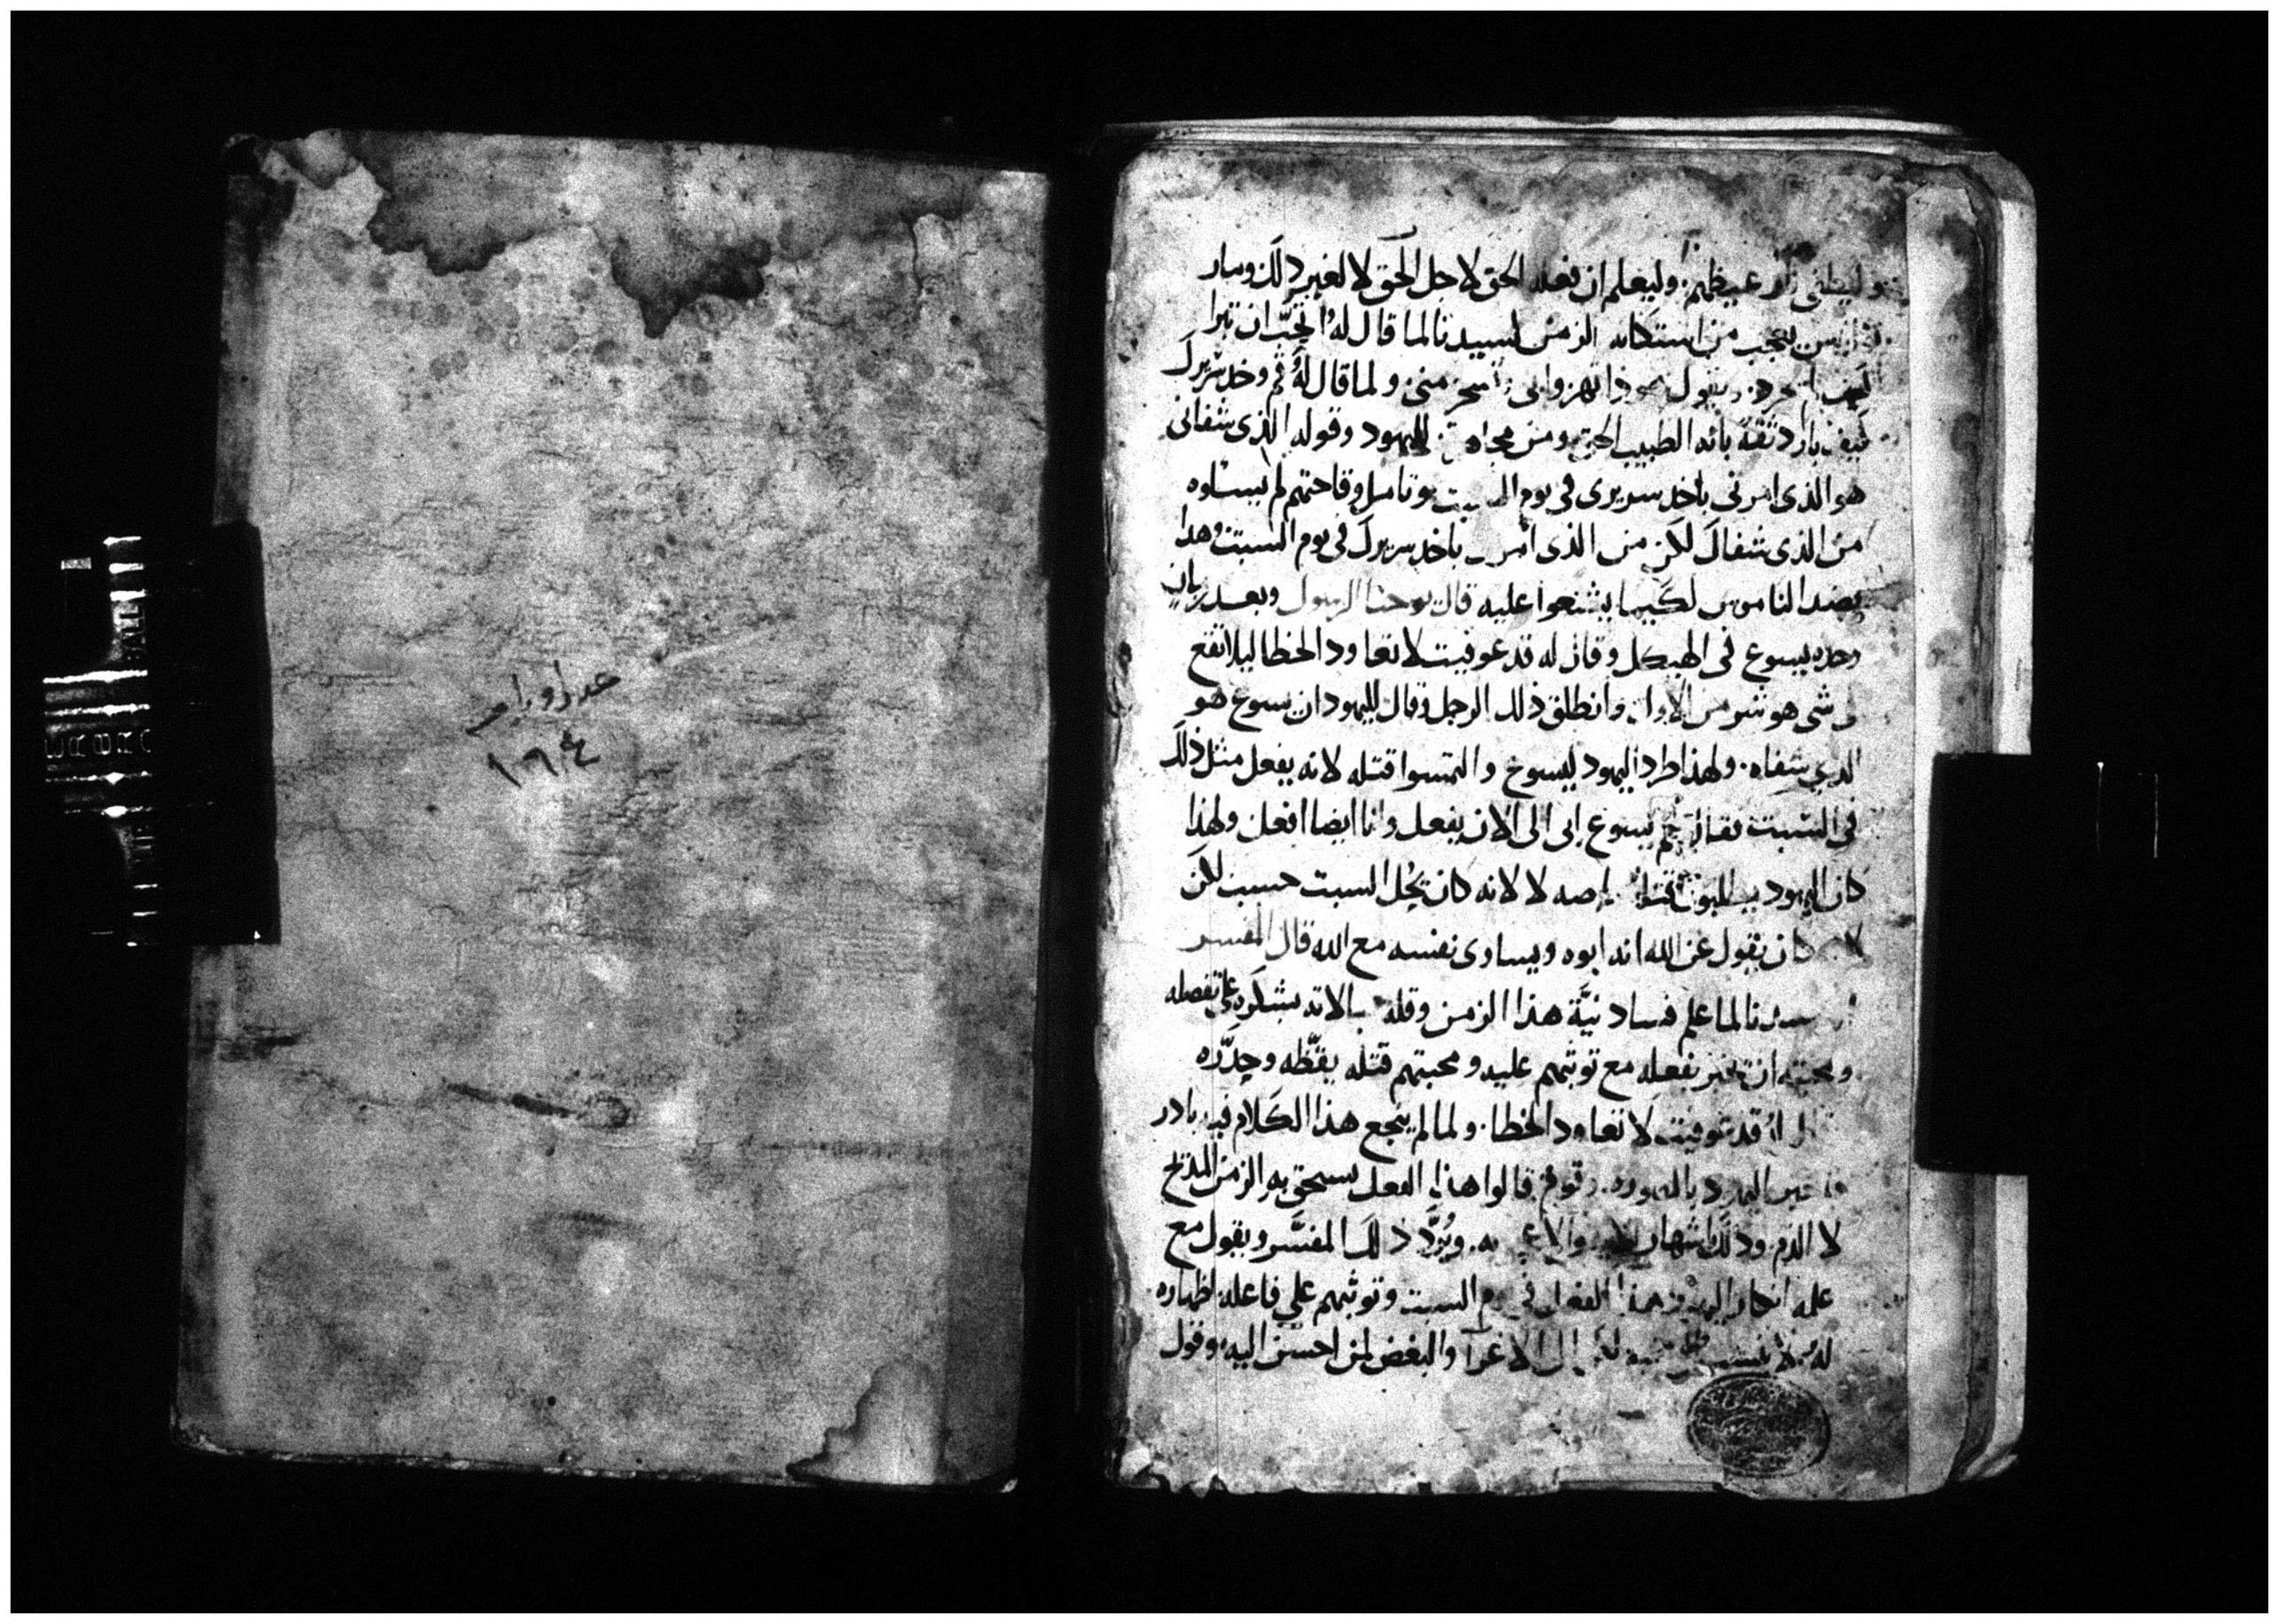 عدد اوراقه
١٦٤
وليطفى نار غيظهم وليعلم ان فعله الحق لاجل الحق لا لغير ذلك ومار
يعجب من استكانه الزمن لسيدنا لما قال له اتحب ان تبرا
ولما قال له قم وخد سريرك
كيف بادر ثقة بانه الطبيب الحق ومن لليهود وقوله الذى شفانى
هو الذى امرنى باخد سريرى فى يوم السبت وتامل وقاحتهم لم يسلوه
من الذى شفاك لكن من الذى امرك باخد سريرك فى يوم السبت وهدا
يضد الناموس لكيما يشنعوا عليه قال يوحنا الرسول وبعد زمان
وجده يسوع فى الهيكل وقال له قد عوفيت لا تعاود الخطا ليلا تقع
فى شى هو شر من الاول وانطلق ذلك الرجل وقال لليهود ان يسوع هو
الدي شفاه. ولهذا طرد اليهود ليسوع والتمسوا قتله لانه يفعل مثل ذلك
فى السبت فقال لهم يسوع ابى الى الان يفعل وانا ايضا افعل ولهذا
كان اليهود يطلبون قتله لا لانه كان يحل السبت حسب لكن
لانه كان يقول عن الله انه ابوه ويساوى نفسه مع الله قال المفسر
سيدنا لما علم فساد نيَّة هذا الزمن وقلة مبالاته بشكره على تفضله
ومحبته ان يخبر بفعله مع توثبهم عليه ومحبتهم قتله يقَّظه وحدَّره
قال له قد عوفيت لا تعاود الخطا. ولما لم ينجع هذا الكلام فيه بادر
اليهود وقوم قالوا هذا الفعل يستحق به الزمن المدح
لا الذم وذلك به. ويُردّ ذلك المفسَّر ويقول مع
علمه انكار اليهود هذا الفعل فى يوم السبت وتوثبهم علي فاعله اظهاره
له الاغرآ والبغض لمن احسن اليه وقول